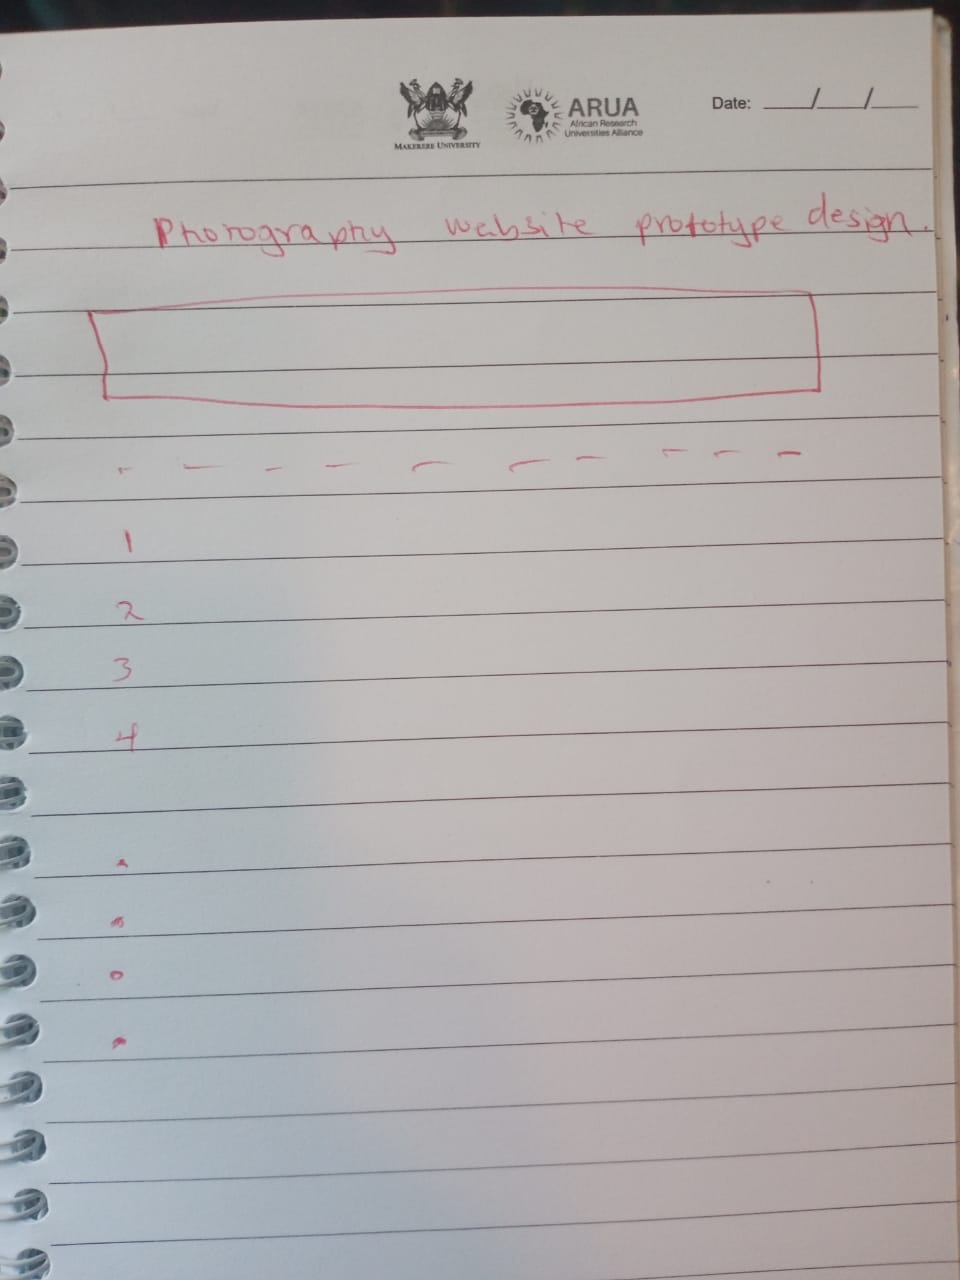 MAKERERE UNIVERSITY
ARUA
African Research
Universities Alliance
Date: ___/___/___
Photography website prototype design.
1
2
3
4